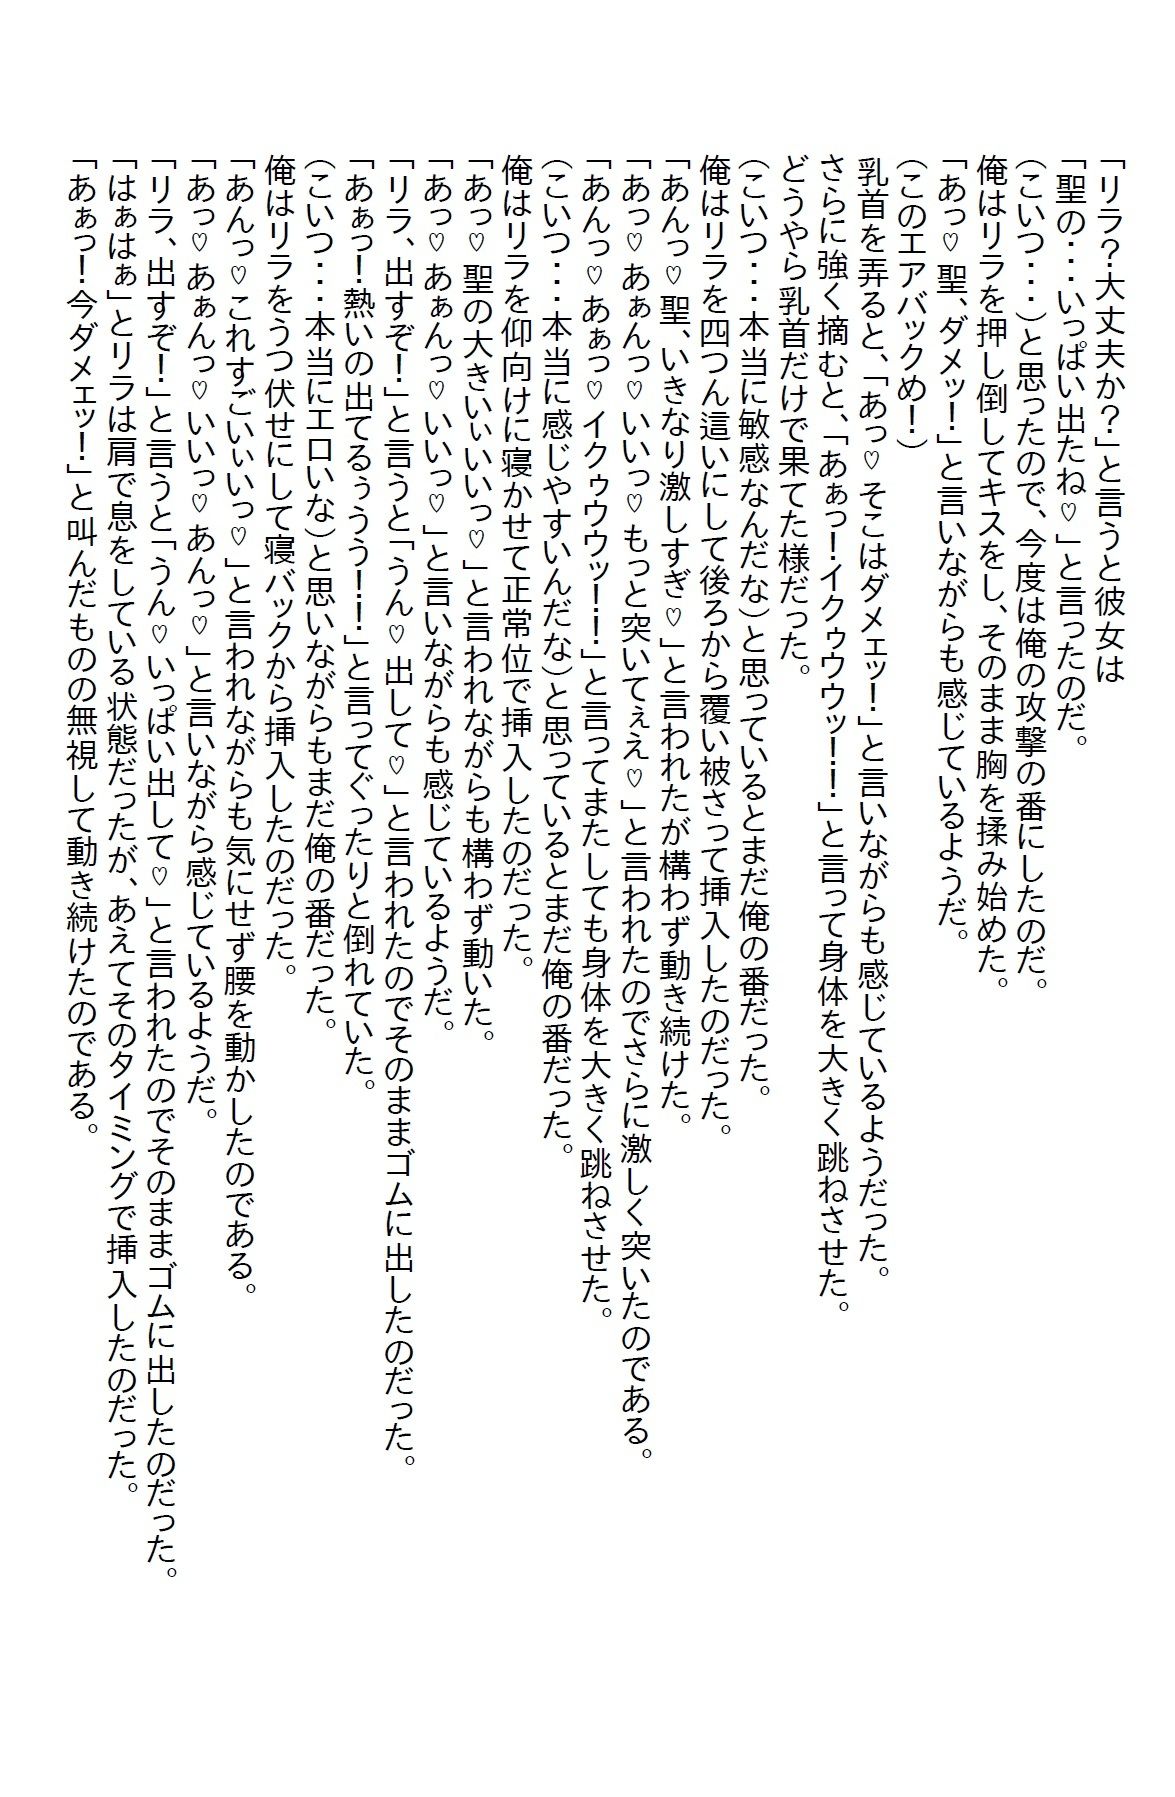 「リラ？大丈夫か？」と言うと彼女は
「聖の・・・いっぱい出たね♡」と言ったのだ。
（こいつ・・・）と思ったので、今度は俺の攻撃の番にしたのだ。
俺はリラを押し倒してキスをし、そのまま胸を揉み始めた。
「あっ♡聖、ダメッ！」と言いながらも感じているようだ。
（このエアバックめ！）
乳首を弄ると、「あっ♡そこはダメェッ！」と言いながらも感じているようだった。
さらに強く摘むと、「あぁっ！イクゥウウッ！！」と言って身体を大きく跳ねさせた。
どうやら乳首だけで果てた様だった。
（こいつ・・・本当に敏感なんだな）と思っているとまだ俺の番だった。
俺はリラを四つん這いにして後ろから覆い被さって挿入したのだった。
「あんっ♡聖、いきなり激しすぎ♡」と言われたが構わず動き続けた。
「あっ♡あぁんっ♡いいっ♡もっと突いてぇえ♡」と言われたのでさらに激しく突いたのである。
「あんっ♡あぁっ♡イクゥウウッ！！」と言ってまたしても身体を大きく跳ねさせた。
（こいつ・・・本当に感じやすいんだな）と思っているとまだ俺の番だった。
俺はリラを仰向けに寝かせて正常位で挿入したのだった。
「あっ♡聖の大きいぃいいっ♡」と言われながらも構わず動いた。
「あっ♡あぁんっ♡いいっ♡」と言いながらも感じているようだ。
「リラ、出すぞ！」と言うと「うん♡出して♡」と言われたのでそのままゴムに出したのだった。
「あぁっ！熱いの出てるぅうう！！」と言ってぐったりと倒れていた。
（こいつ・・・本当にエロいな）と思いながらもまだ俺の番だった。
俺はリラをうつ伏せにして寝バックから挿入したのだった。
「あんっ♡これすごいぃいっ♡」と言われながらも気にせず腰を動かしたのである。
「あっ♡あぁんっ♡いいっ♡あんっ♡」と言いながら感じているようだ。
「リラ、出すぞ！」と言うと「うん♡いっぱい出して♡」と言われたのでそのままゴムに出したのだった。
「はぁはぁ」とリラは肩で息をしている状態だったが、あえてそのタイミングで挿入したのだった。
「あぁっ！今ダメェッ！」と叫んだものの無視して動き続けたのである。